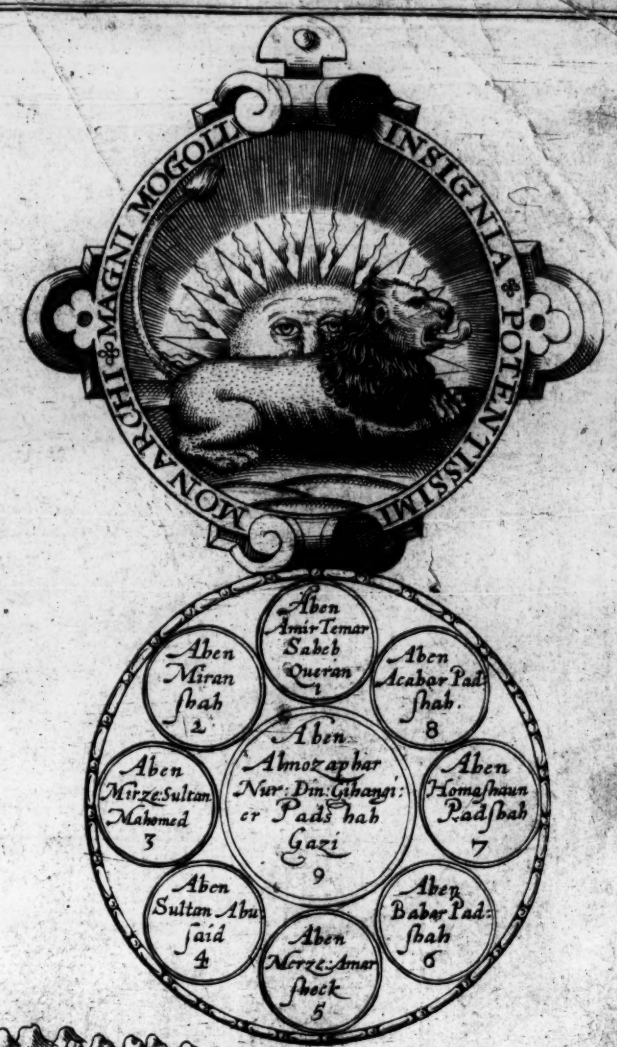 INSIGNIA POTENTISSIMI
MONARCHI MAGNI MOGOLL
Aben
Amir Temar
Saheb
Queran
1
Aben
Miran
ſhah
2
Aben
Mirze: Sultan
Mahomed
3
Aben
Sultan Abu
ſaid
4
Aben
Merze: Amar
ſheck
5
Aben
Babar Pad:
ſhah
6
Aben
Homaſhaun
Padſhah
7
Aben
Acabar Pad
ſhah.
8
Aben
Almozaphar
Nur: Din: Gihangi:
er Pads hah
Gazi
9